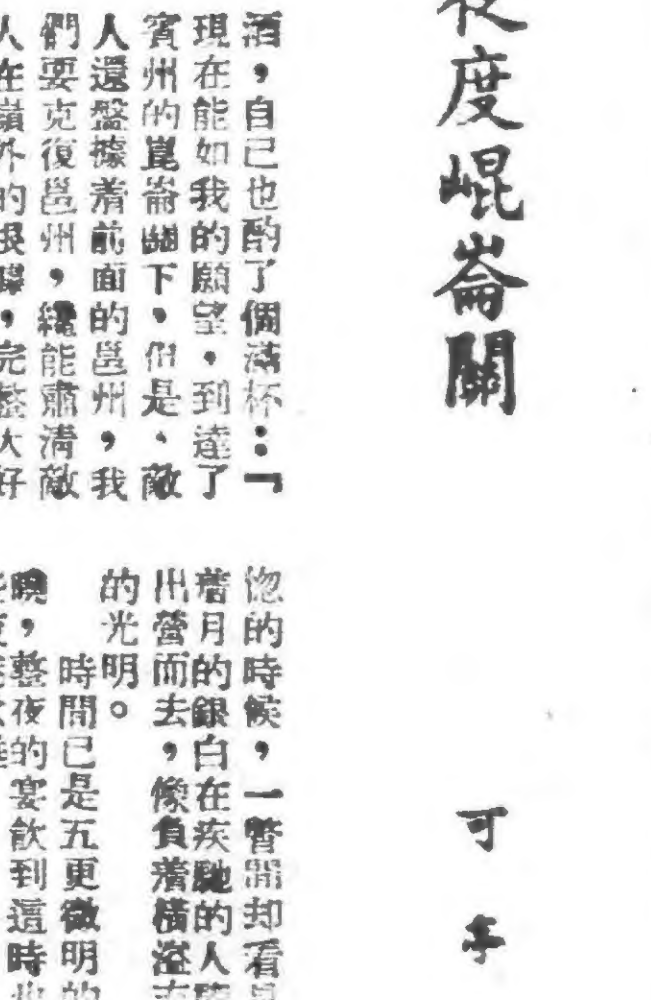 夜度崐崙關
可亭
酒，自己也酌了個滿杯：『
現在能如我的願望，到達了
賓州的崑崙關下，但是、敵
人還盤據着前面的邕州，我
們要克復邕州，纔能肅清敵
人在嶺外的根，完整大好
惚的時候，一瞥間却看見
着月的銀白在疾馳的人
出營而去，像負着橫溢
的光明。
時間已是五更微明的
曉，整夜的宴飲到這時